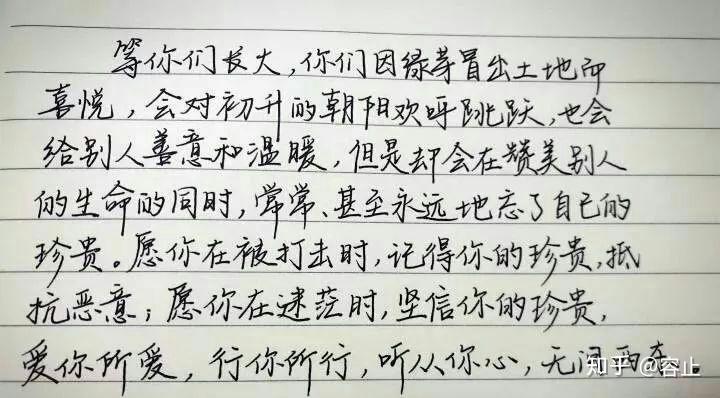 等你们长大,你们因绿芽冒出土地而
喜悦,会对初升的朝阳欢呼跳跃,也会
给别人善意和温暖,但是却会在赞美别人
的生命的同时,常常、甚至永远地忘了自己的
珍贵。愿你在被打击时,记得你的珍贵,抵
抗恶意;愿你在迷茫时,坚信你的珍贵,
爱你所爱,行你所行,听从你心,无问西东。
知乎 @容止